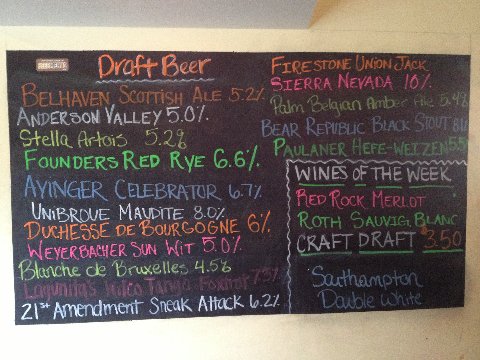 Draft Beer
Belhaven Scottish Ale 5.2%
Anderson Valley 5.0%
Stella Artois 5.2%
Founders Red Rye 6.6%
Ayinger Celebrator 6.7%
Unibroue Maudite 8.0%
Duchesse de Bourgogne 6%
Weyerbacher Sun Wit 5.0%
Blanche de Bruxelles 4.5%
Lagunita's Tango Foxtrot
21st Amendment Sneak Attack 6.2%
Firestone Union Jack
Sierra Nevada 10%
Palm Belgian Amber Ale 5.4%
Bear Republic Black Stout
Paulaner Hefe-Weizen
Wines of the Week
Red Rock Merlot
Roth Sauvig. Blanc
Craft Draft $3.50
Southampton
Double White